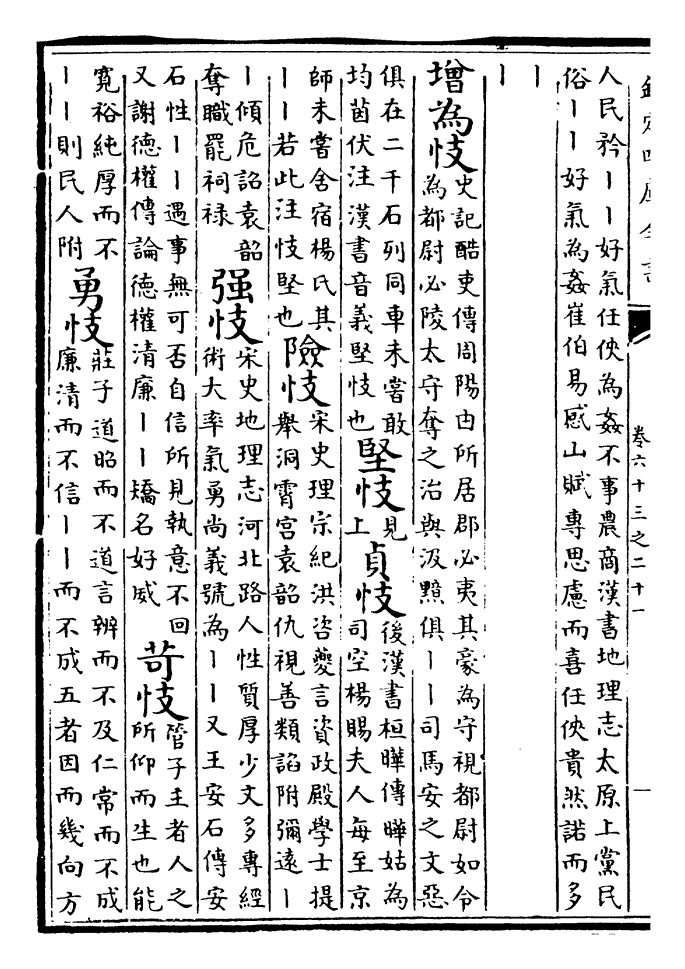 欽定四庫全書
卷六十三之二十一
一
人民矜〡〡好氣任俠為姦不事農商漢書地理志太原上黨民
俗〡〡好氣為姦崔伯易感山賦專思慮而喜任俠貴然諾而多
〡
〡
增為忮
史記酷吏傳周陽由所居郡必夷其豪為守視都尉如令
為都尉必陵太守奪之治與汲黯俱〡〡司馬安之文惡
俱在二千石列同車未嘗敢
均茵伏注漢書音義堅忮也
堅忮
見
上
貞忮
後漢書桓曄傳曄姑為
司空楊賜夫人每至京
師未嘗舍宿楊氏其
〡〡若此注忮堅也
險忮
宋史理宗紀洪咨夔言資政殿學士提
舉洞霄宮袁韶仇視善類諂附彌遠〡
〡傾危詔袁韶
奪職罷祠祿
强忮
宋史地理志河北路人性質厚少文多專經
術大率氣勇尚義號為〡〡又王安石傳安
石性〡〡遇事無可否自信所見執意不回
又謝德權傳論德權清廉〡〡矯名好威
苛忮
管子王者人之
所仰而生也能
寛裕純厚而不
〡〡則民人附
勇忮
莊子道昭而不道言辨而不及仁常而不成
廉清而不信〡〡而不成五者因而幾向方